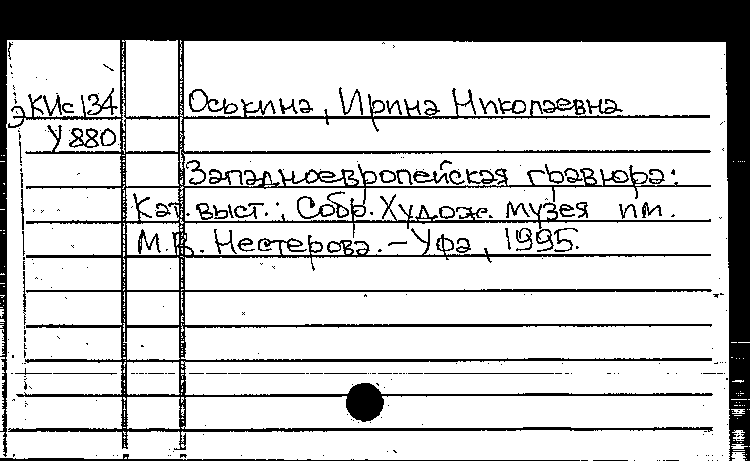 эКИс134 Оськина, Ирина Николаевна
У880
Западноевропейская гравюра:
Кат. выст.; Собр. Худож. музея им.
М.В. Нестерова. – Уфа, 1995.